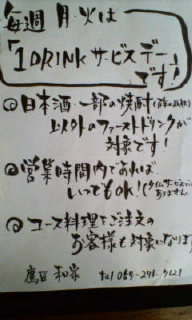 毎週 月・火は
「1DRINKサービスデー」
です!
◎日本酒・一部の焼酎
以外のファーストドリンクが
対象です!
◎営業時間内であれば
いつでもOK!(タイムサービスでは
ありません
◎コース料理をご注文の
お客様も対象になります